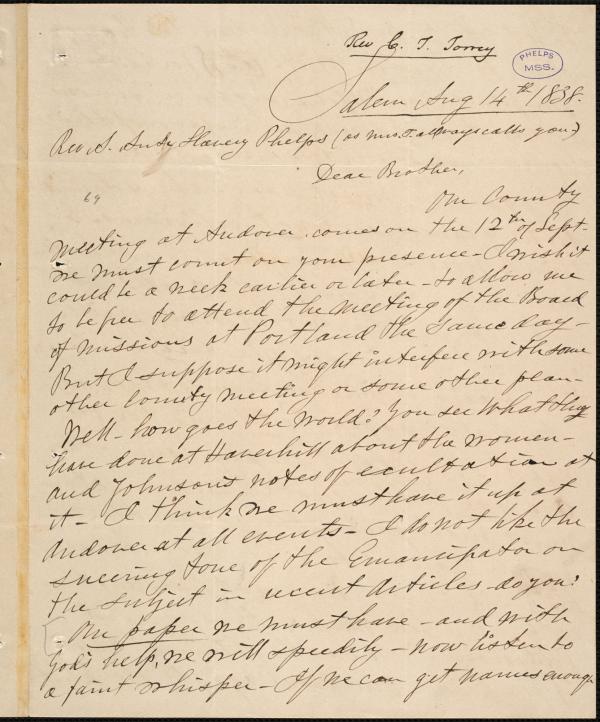 Rev C. T. Torrey
PHELPS
MSS.
Salem Aug 14th 1838.
Rev A. Anty Slavery Phelps (as Mrs. T. always calls you)
Dear Brother,
69
Our County
meeting at Andover comes on the 12th of Sept.
we must count on your presence - I wish it
could be a week earlier or later - to allow me
to be free to attend the meeting of the Board
of missions at Portland the same day -
But I suppose it might interfere with some
other County meeting or some other plan -
Well - how goes the world? You see what they
have done at Haverhill about the women -
and Johnson's notes of exultation at
it - I think we must have it up at
Andover at all events - I do not like the
sneering tone of the Emancipator on
the subject in recent articles - do you?
Our paper we must have - and with
God's help, we will speedily - now listen to
a faint whisper - If we can get names enough